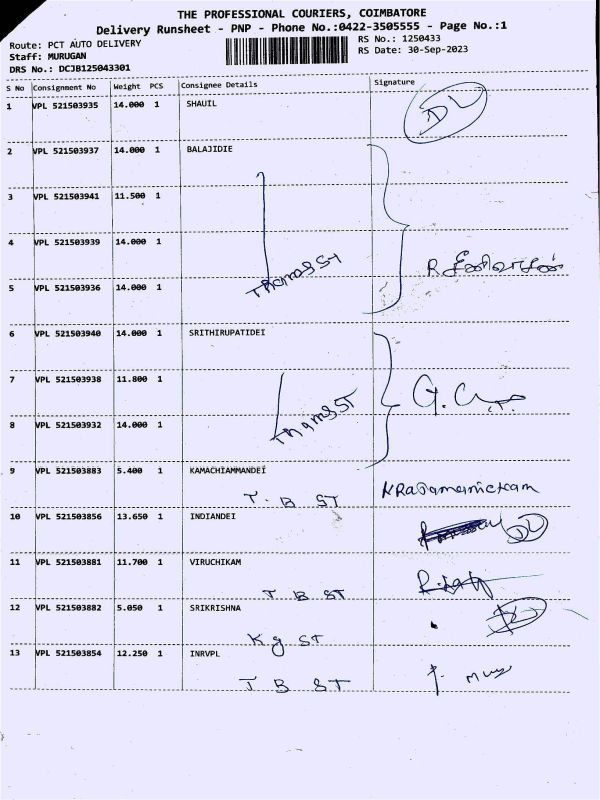 THE PROFESSIONAL COURIERS, COIMBATORE
Delivery Runsheet - PNP - Phone No.:0422-3505555 - Page No.:1
Route: PCT AUTO DELIVERY
RS No.: 1250433
Staff: MURUGAN
RS Date: 30-Sep-2023
DRS No.: DCJB125043301
S No Consignment No Weight PCS Consignee Details Signature
1 VPL 521503935 14.000 1 SHAUIL
DL
2 VPL 521503937 14.000 1 BALAJIDIE
3 VPL 521503941 11.500 1
4 VPL 521503939 14.000 1
Thomas ST R சீனிவாசன்
5 VPL 521503936 14.000 1
6 VPL 521503940 14.000 1 SRITHIRUPATIDEI
7 VPL 521503938 11.800 1
Thomas ST
8 VPL 521503932 14.000 1
9 VPL 521503883 5.400 1 KAMACHIAMMANDEI
T. B ST
10 VPL 521503856 13.650 1 INDIANDEI
DL
11 VPL 521503881 11.700 1 VIRUCHIKAM
T B ST
12 VPL 521503882 5.050 1 SRIKRISHNA
Kg ST
13 VPL 521503854 12.250 1 INRVPL
T B ST